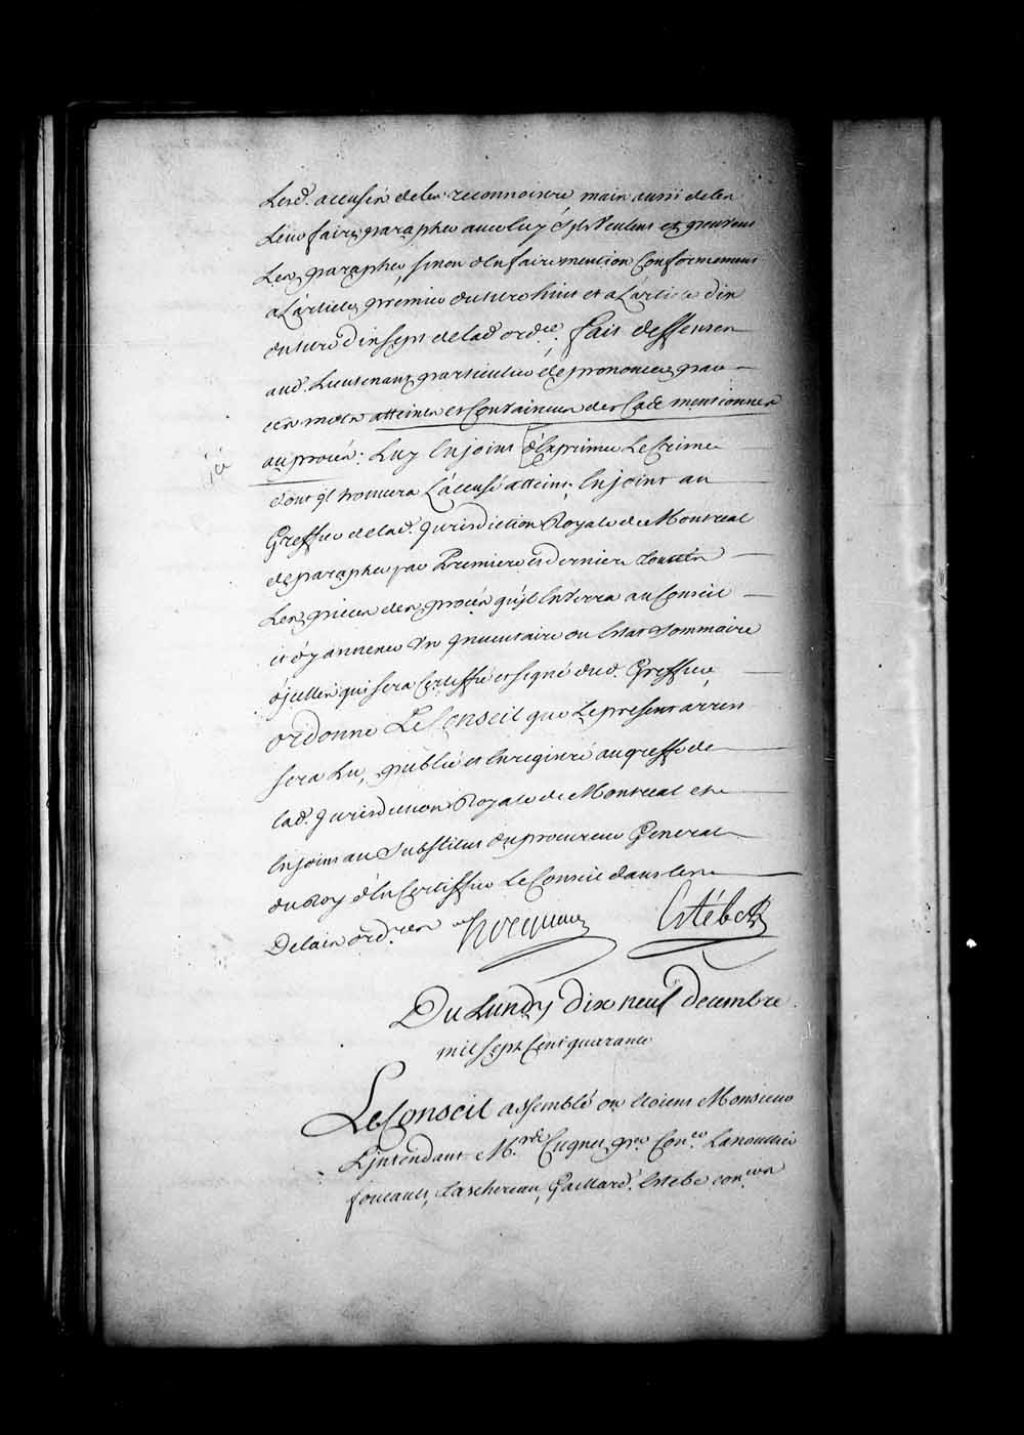 Lesd. accusés de les reconnoitre mais aussi de les
Leur faire parapher avec luy s'ils veulent et peuvent
Les parapher, sinon d'En faire mention Conformement
a L'article premier du titre huit et a L'article dix
du titre dix sept de lad. ordce. fait deffenses
aud. Lieutenant particulier de prononcer par
ces mots atteints et Convaincus des Cas mentionnés
au procès: Luy Enjoint d'Exprimer Le Crime
dont il trouvera L'accusé atteint, Enjoint au
Greffier de lad. Jurisdiction Royale de Montreal
de parapher par Premiere et derniere toutes
Les pieces des procès qu'il Enverra au Conseil
et d'y annexer Un Inventaire ou Etat Sommaire
d'jcelles qui sera Certiffié et signé dud. Greffier
ordonne Le Conseil que Le present arrest
sera Lu, publié et Enregistré au greffe de
lad. Jurisdiction Royale de Montreal et
Enjoint au Substitut du procureur General
du Roy d'En Certiffier Le Conseil dans les
Delais ordres
Hocquart Estébe
Du Lundy dix neuf decembre
mil sept Cent quarante
Le Conseil assemblé ou Etoient Monsieur
L'jntendant Mrs. Cugnet pr. Coner. Lanoullier
foucault, Taschereau, Gaillard, Estebe coners.